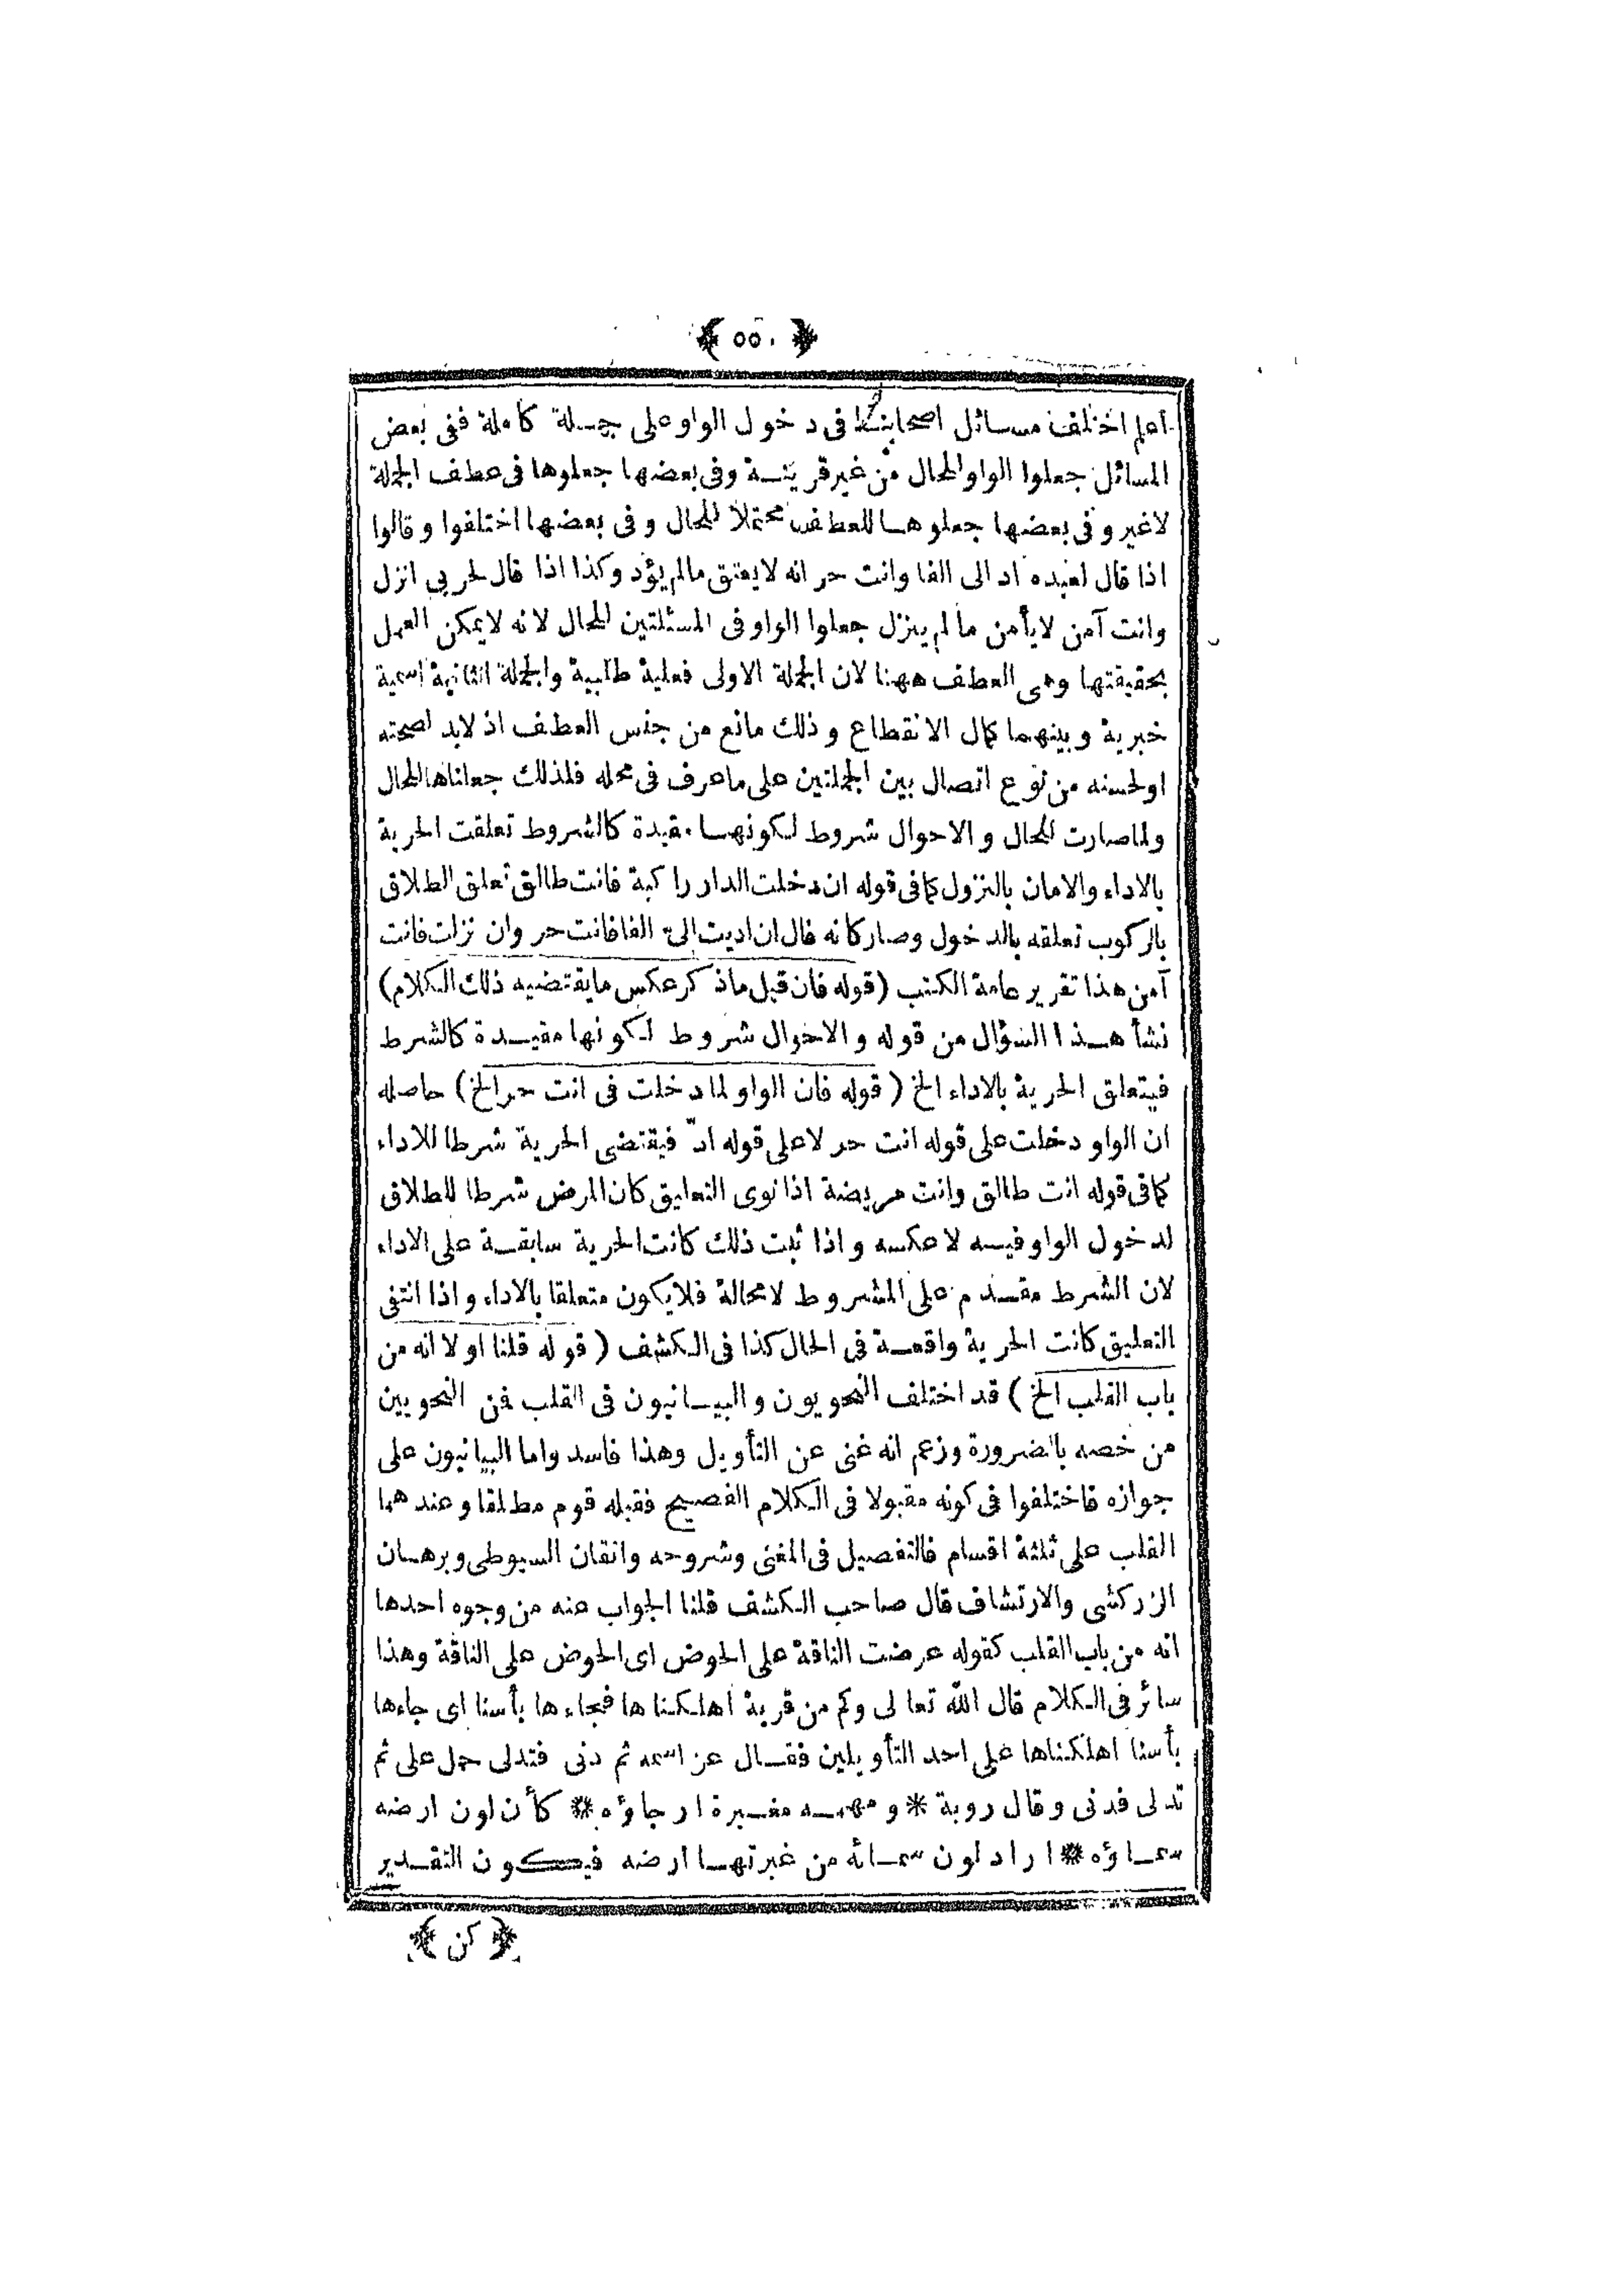 ﴿ ٥٥٠ ﴾
اعلم اختلف مسائل اصحابنا فى دخول الواو على جملة كاملة ففى بعض
المسائل جعلوا الواو للحال من غير قرينة وفى بعضها جعلوها فى عطف الجملة
لاغير وفى بعضها جعلوها للعطف محتملا للحال وفى بعضها اختلفوا وقالوا
اذا قال لعبده اد الى الفا وانت حر انه لايعتق مالم يؤد وكذا اذا قال لحربى انزل
وانت آمن لايأمن مالم ينزل جعلوا الواو فى المسئلتين للحال لانه لايمكن العمل
بحقيقتها وهى العطف ههنا لان الجملة الاولى فعلية طلبية والجملة الثانية اسمية
خبرية وبينهما كمال الانقطاع وذلك مانع من جنس العطف اذ لابد لصحته
اولحسنه من نوع اتصال بين الجملتين على ماعرف فى محله فلذلك جعلناها للحال
ولماصارت للحال والاحوال شروط لكونها مقيدة كالشروط تعلقت الحرية
بالاداء والامان بالنزول كمافى قوله ان دخلت الدار راكبة فانت طالق تعلق الطلاق
بالركوب تعلقه بالدخول وصاركانه قال ان اديت الىّ الفا فانت حر وان نزلت فانت
آمن هذا تقرير عامة الكتب (قوله فان قيل ماذكر عكس مايقتضيه ذلك الكلام)
نشأ هذا السؤال من قوله والاحوال شروط لكونها مقيدة كالشرط
فيتعلق الحرية بالاداء الخ (قوله فان الواو لما دخلت فى انت حر الخ) حاصله
ان الواو دخلت على قوله انت حر لاعلى قوله ادّ فيقتضى الحرية شرطا للاداء
كمافى قوله انت طالق وانت مريضة اذا نوى التعليق كان المرض شرطا للطلاق
لدخول الواو فيه لاعكسه واذا ثبت ذلك كانت الحرية سابقة على الاداء
لان الشرط مقدم على المشروط لامحالة فلايكون متعلقا بالاداء واذا انتفى
التعليق كانت الحرية واقعة فى الحال كذا فى الكشف (قوله قلنا اولا انه من
باب القلب الخ) قد اختلف النحويون والبيانيون فى القلب فمن النحويين
من خصه بالضرورة وزعم انه غنى عن التأويل وهذا فاسد واما البيانيون على
جوازه فاختلفوا فى كونه مقبولا فى الكلام الفصيح فقبله قوم مطلقا وعندهما
القلب على ثلثة اقسام فالتفصيل فى المغنى وشروحه واتقان السيوطى وبرهان
الزركشى والارتشاف قال صاحب الكشف قلنا الجواب عنه من وجوه احدها
انه من باب القلب كقوله عرضت الناقة على الحوض اى الحوض على الناقة وهذا
سائر فى الكلام قال الله تعالى وكم من قرية اهلكناها فجاءها بأسنا اى جاءها
بأسنا اهلكناها على احد التأويلين فقال عز اسمه ثم دنى فتدلى حمل على ثم
تدلى فدنى وقال روبة * ومهمه مغبرة ارجاؤه * كأن لون ارضه
سماؤه * اراد لون سمائه من غبرتها ارضه فيكون التقدير
﴿ كن ﴾